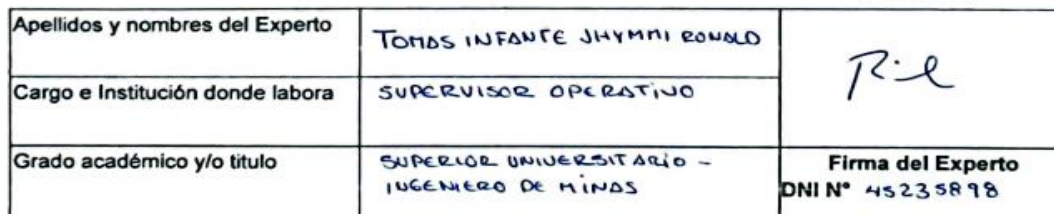 Apellidos y nombres del Experto
TOMAS INFANTE JHYMMI RONALD
Cargo e Institución donde labora
SUPERVISOR OPERATIVO
Grado académico y/o titulo
SUPERIOR UNIVERSITARIO -
INGENIERO DE MINAS
Firma del Experto
DNI N° 45235898